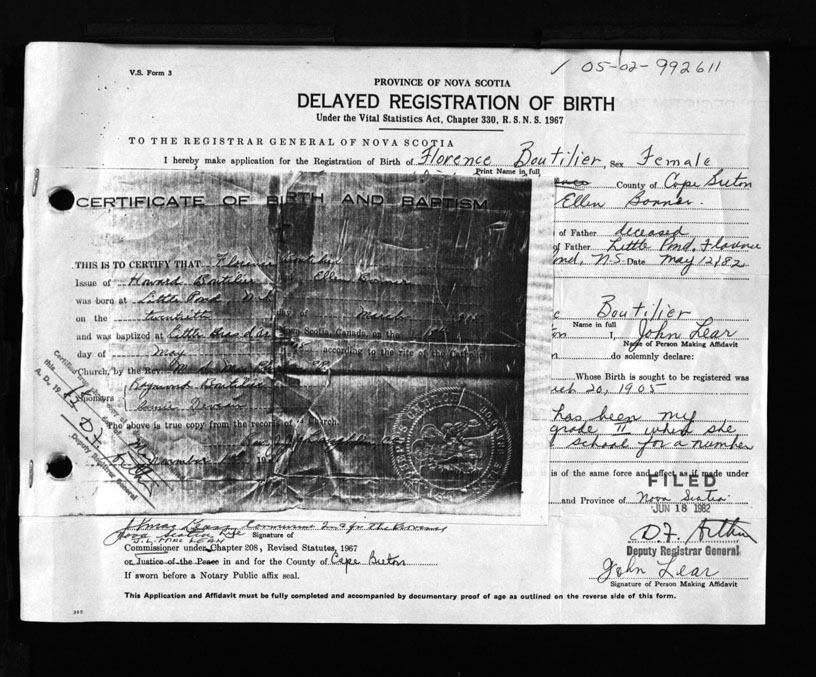 V.S. Form 3
✓ 05-02-992611
PROVINCE OF NOVA SCOTIA
DELAYED REGISTRATION OF BIRTH
Under the Vital Statistics Act, Chapter 330, R. S. N. S. 1967
TO THE REGISTRAR GENERAL OF NOVA SCOTIA
I hereby make application for the Registration of Birth of Florence Boutilier, Sex Female
Print Name in full
County of Cape Breton
Ellen Bonner.
of Father deceased
of Father Little Pond,
N.S. Date May 12/82
Boutilier
Name in full
I, John Lear
Name of Person Making Affidavit
do solemnly declare:
Whose Birth is sought to be registered was
20, 1905
has been my
grade 11 when she
school for a number
is of the same force and effect as if made under
and Province of Nova Scotia
FILED
JUN 18 1982
D.F. Arthur
Deputy Registrar General
John Lear
Signature of Person Making Affidavit
CERTIFICATE OF BIRTH AND BAPTISM
THIS IS TO CERTIFY THAT Florence Boutilier
Issue of Howard Boutilier Ellen Bonner
was born at Little Pond, N.S.
on the twentieth day of March
and was baptized at Little Bras d'Or Nova Scotia, Canada, on the
day of May according to the Rite of the Catholic
Church, by the Rev.
Raymond Boutilier
Sponsors
The above is true copy from the records of Church
Deputy Registrar General
Nova Scotia
J. L. MacLEAN
Signature of
Commissioner under Chapter 208, Revised Statutes, 1967
or Justice of the Peace in and for the County of Cape Breton
If sworn before a Notary Public affix seal.
This Application and Affidavit must be fully completed and accompanied by documentary proof of age as outlined on the reverse side of this form.